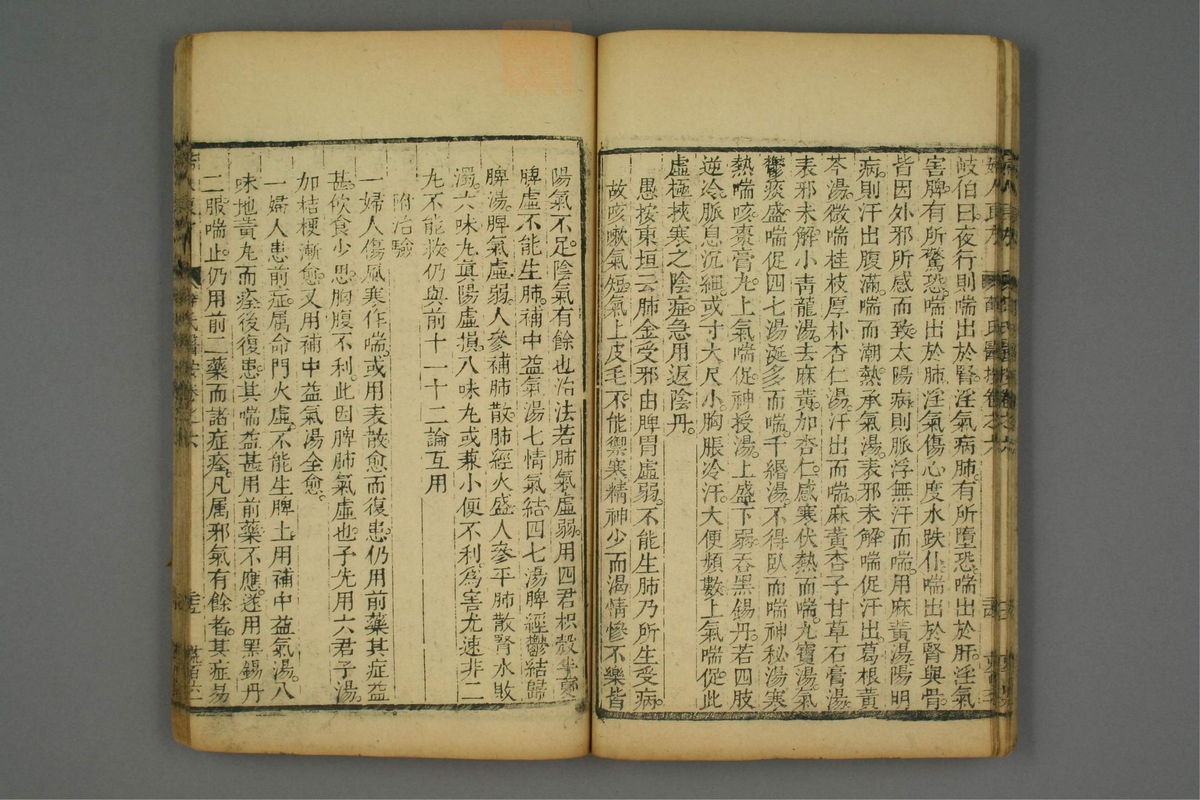 岐伯曰夜行則喘出於腎淫氣病肺有所墮恐喘出於肝淫氣
害脾有所驚恐喘出於肺淫氣傷心度水跌仆喘出於腎與骨
皆因外邪所感而致太陽病則脈浮無汗而喘用麻黃湯陽明
病則汗出腹滿喘而潮熱承氣湯表邪未解喘促汗出葛根黃
芩湯微喘桂枝厚朴杏仁湯汗出而喘麻黃杏子甘草石膏湯
表邪未解小青龍湯去麻黃加杏仁感寒伏熱而喘九寶湯氣
鬱痰盛喘促四七湯涎多而喘千緡湯不得臥而喘神秘湯寒
熱喘咳棗膏丸上氣喘促神授湯上盛下弱吞黑錫丹若四肢
逆冷脈息沉細或寸大尺小胸脹冷汗大便頻數上氣喘促此
虛極挾寒之陰症急用返陰丹
愚按東垣云肺金受邪由脾胃虛弱不能生肺乃所生受病
故咳嗽氣短氣上皮毛不能禦寒精神少而渴情慘不樂皆
陽氣不足陰氣有餘也治法若肺氣虛弱用四君枳殼半夏
脾虛不能生肺補中益氣湯七情氣結四七湯脾經鬱結歸
脾湯脾氣虛弱人參補肺散肺經火盛人參平肺散腎水敗
濁六味丸真陽虛損八味丸或兼小便不利為害尤速非二
丸不能救仍與前十一十二論互用
附治驗
一婦人傷風寒作喘或用表散愈而復患仍用前藥其症益
甚飲食少思胸腹不利此因脾肺氣虛也予先用六君子湯
加桔梗漸愈又用補中益氣湯全愈
一婦人患前症属命門火虛不能生脾土用補中益氣湯八
味地黃丸而痊後復患其喘益甚用前藥不應遂用黑錫丹
二服喘止仍用前二藥而諸症痊凡属邪氣有餘者其症易